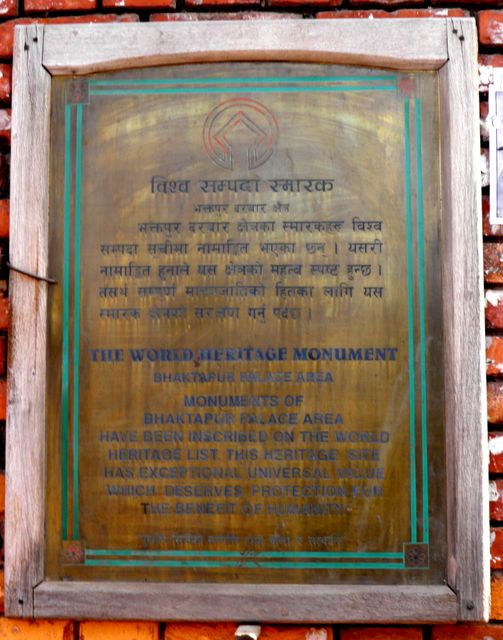 विश्व सम्पदा स्मारक
भक्तपुर दरबार क्षेत्र
भक्तपुर दरबार क्षेत्रका स्मारकहरू विश्व
सम्पदा सूचीमा नामाङ्कित भएका छन् । यसरी
नामाङ्कित हुनाले यस क्षेत्रको महत्व स्पष्ट हुन्छ ।
तसर्थ सम्पूर्ण मानवजातिको हितका लागि यस
स्मारक क्षेत्रको संरक्षण गर्नु पर्दछ ।
THE WORLD HERITAGE MONUMENT
BHAKTAPUR PALACE AREA
MONUMENTS OF
BHAKTAPUR PALACE AREA
HAVE BEEN INSCRIBED ON THE WORLD
HERITAGE LIST. THIS HERITAGE SITE
HAS EXCEPTIONAL UNIVERSAL VALUE
WHICH DESERVES PROTECTION FOR
THE BENEFIT OF HUMANITY